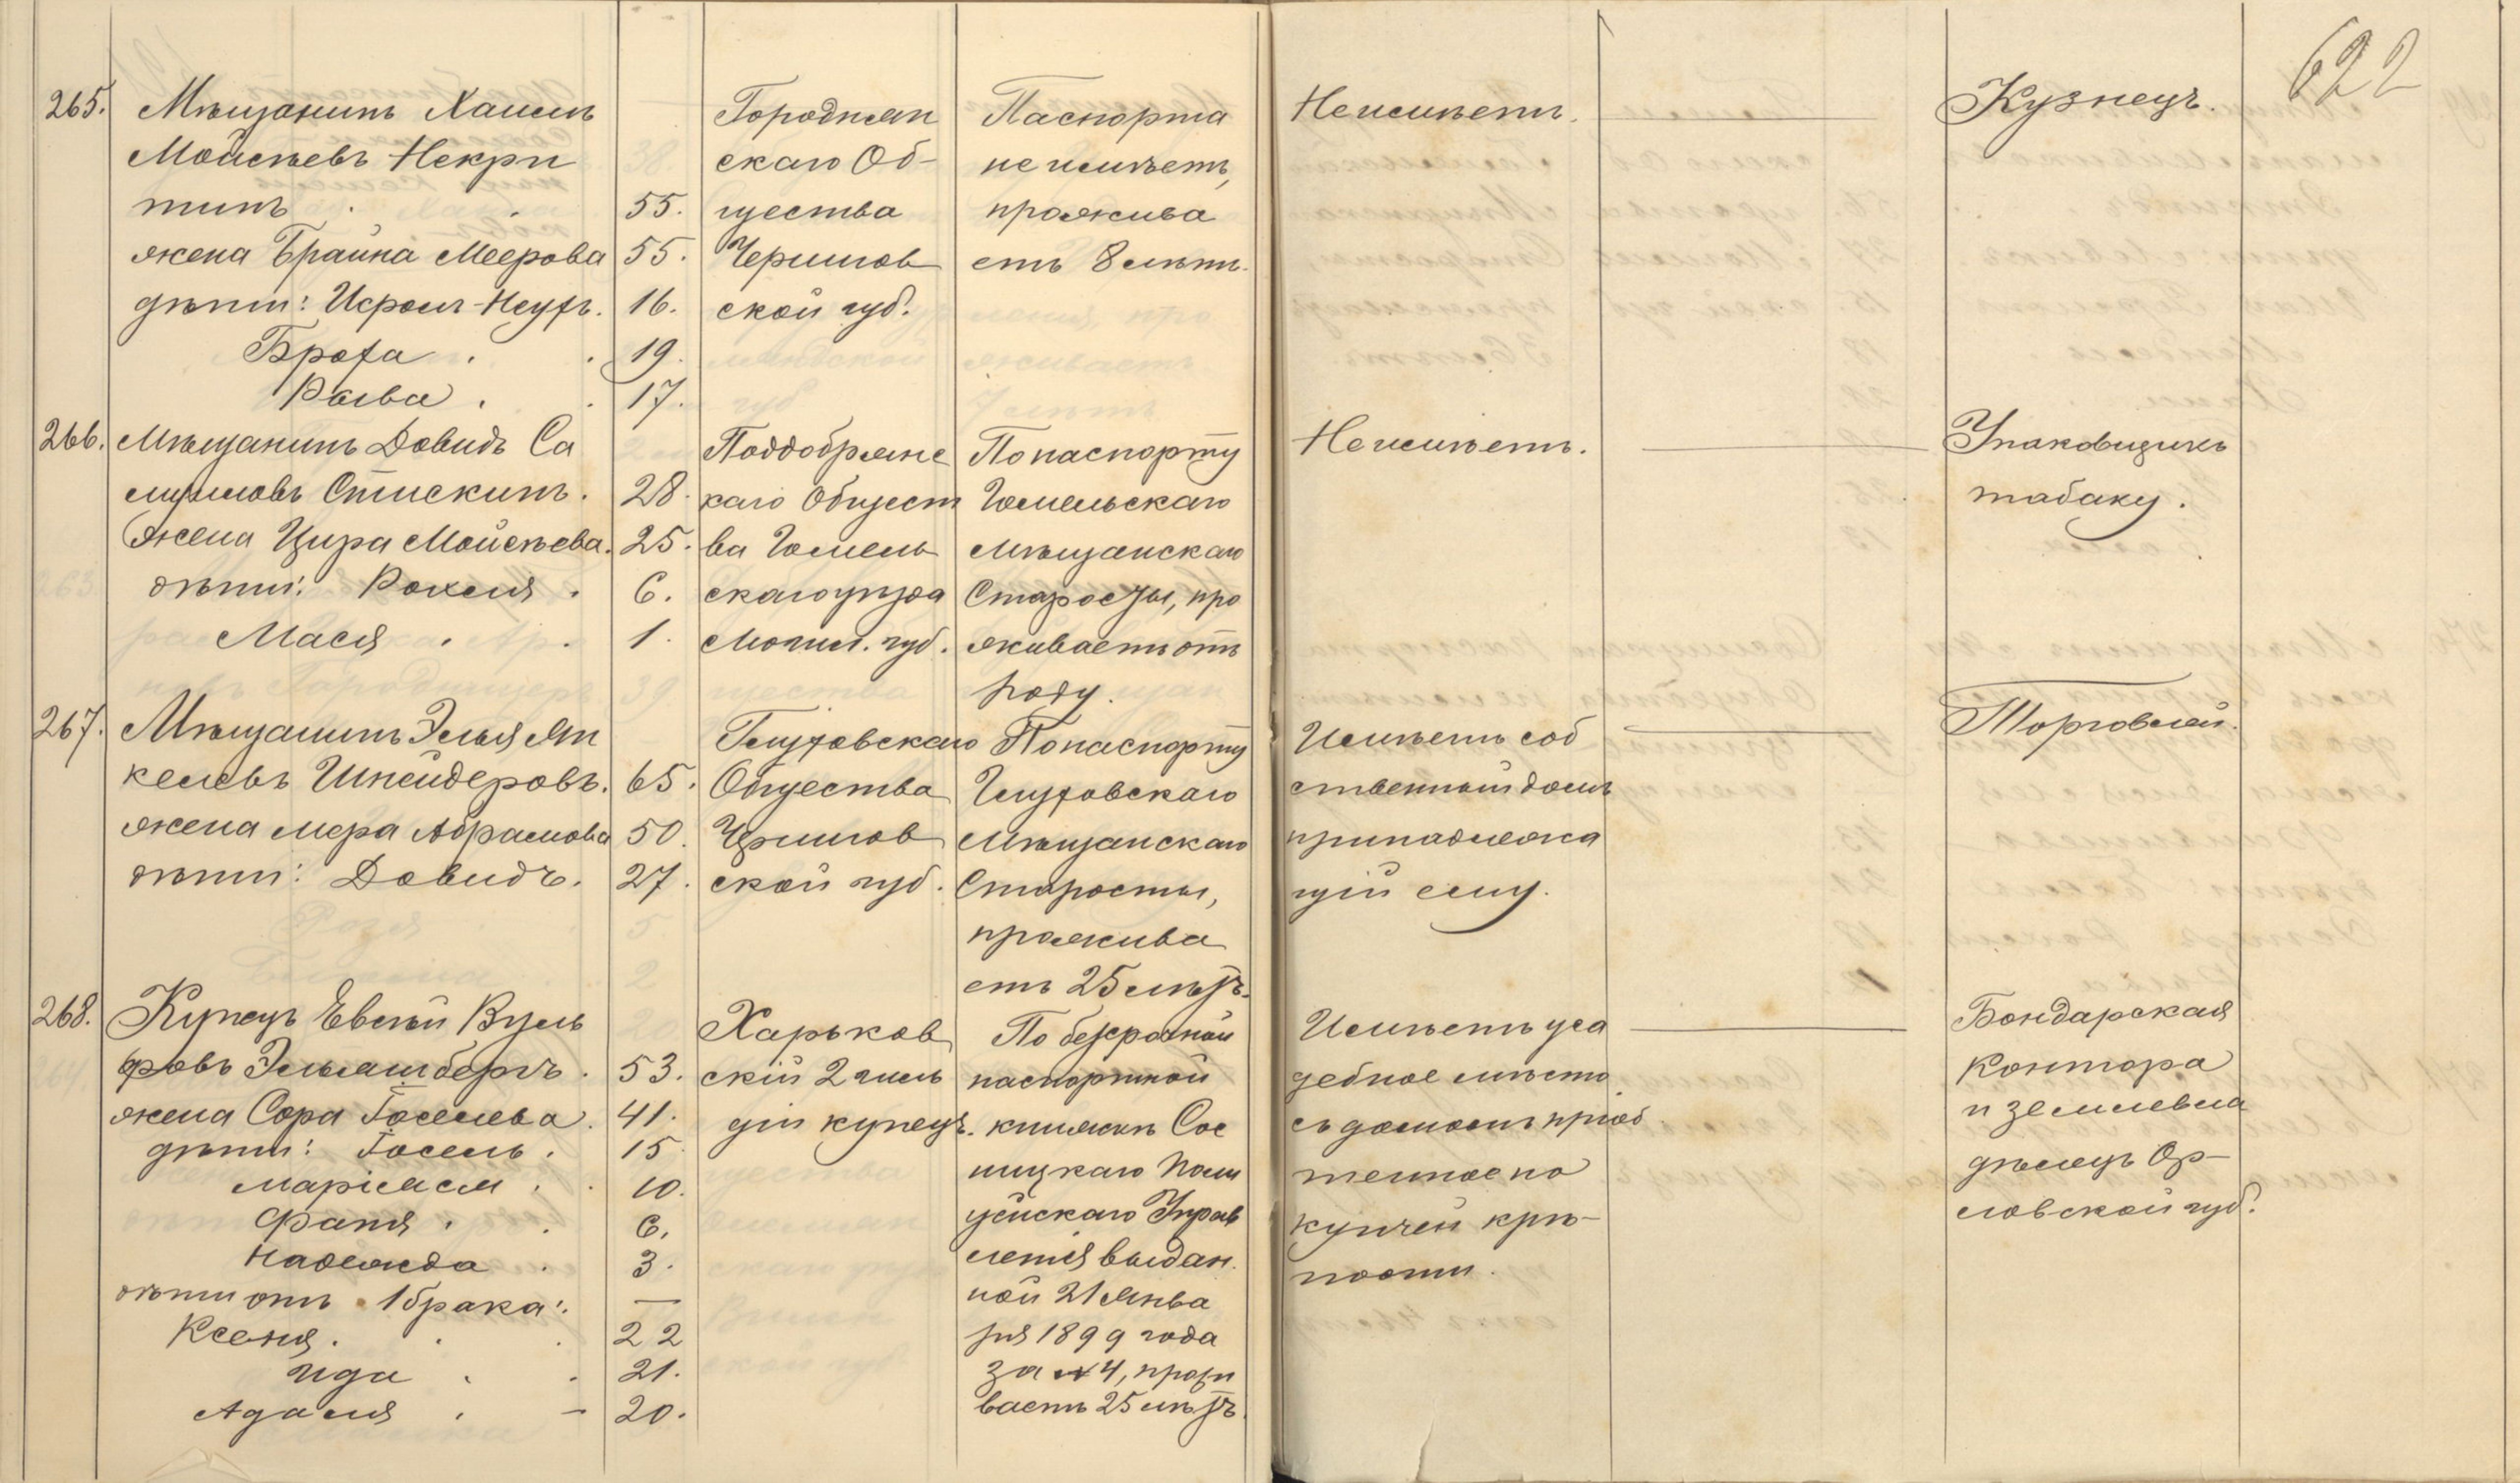 622
265.
Мѣщанинъ Хаимъ
Мойсѣевъ Некри
тинъ . . 55.
жена Брайна Меерова 55.
дѣти: Исроел-Неухъ. 16.
Броха . . 19.
Рыва . . 17.
Городнян
скаго Об-
щества
Чернигов
ской губ.
Паспорта
не имѣетъ,
прожива
етъ 8 лѣтъ.
Неимѣетъ.
Кузнецъ.
266.
Мѣщанинъ Довидъ Са
Спискинъ. 28.
Жена Цира Мойсѣева. 25.
дѣти: Рохеля . 6.
Мася . . 1.
Поддобрянс
каго Общест
ва Гомель
скаго уѣзда
Могил. губ.
По паспорту
Гомельскаго
Мѣщанскаго
Старосты, про
живаетъ отъ
роду.
Неимѣетъ.
Упаковщикъ
табаку.
267.
Мѣщанинъ Элья Ян
келевъ Шнейдеровъ. 65.
жена Мера Абрамова 50.
дѣти: Довидъ. 27.
Глуховскаго
Общества
Чернигов
ской губ.
По паспорту
Глуховскаго
Мѣщанскаго
Старосты,
прожива
етъ 25 лѣтъ.
Имѣетъ соб
ственный домъ
принадлежа
щій ему.
Торговлей.
268.
Купецъ Евсѣй Вуль
фовъ Эльяшбергъ. 53.
жена Сора Іоселева. 41.
дѣти: Іосель. 15.
Маріасм . . 10.
Фаня . . 6.
Надежда . 3.
дѣти отъ 1 брака: —
Ксеня. . . 22
Ида . . 21.
Адаля . – 20.
Харьков
скій 2 гиль
діи купецъ.
По безсрочной
паспортной
книжкѣ Сос
ницкаго Поли
цейскаго Управ
ленія выдан.
ной 21 Янва
ря 1899 года
за № 4, прожи
ваетъ 25 лѣтъ.
Имѣетъ уса
дебное мѣсто
съ домомъ пріоб
тенное по
купчей крѣ-
пости.
Бондарская
контора
и землевла
дѣлецъ Ор-
ловской губ.